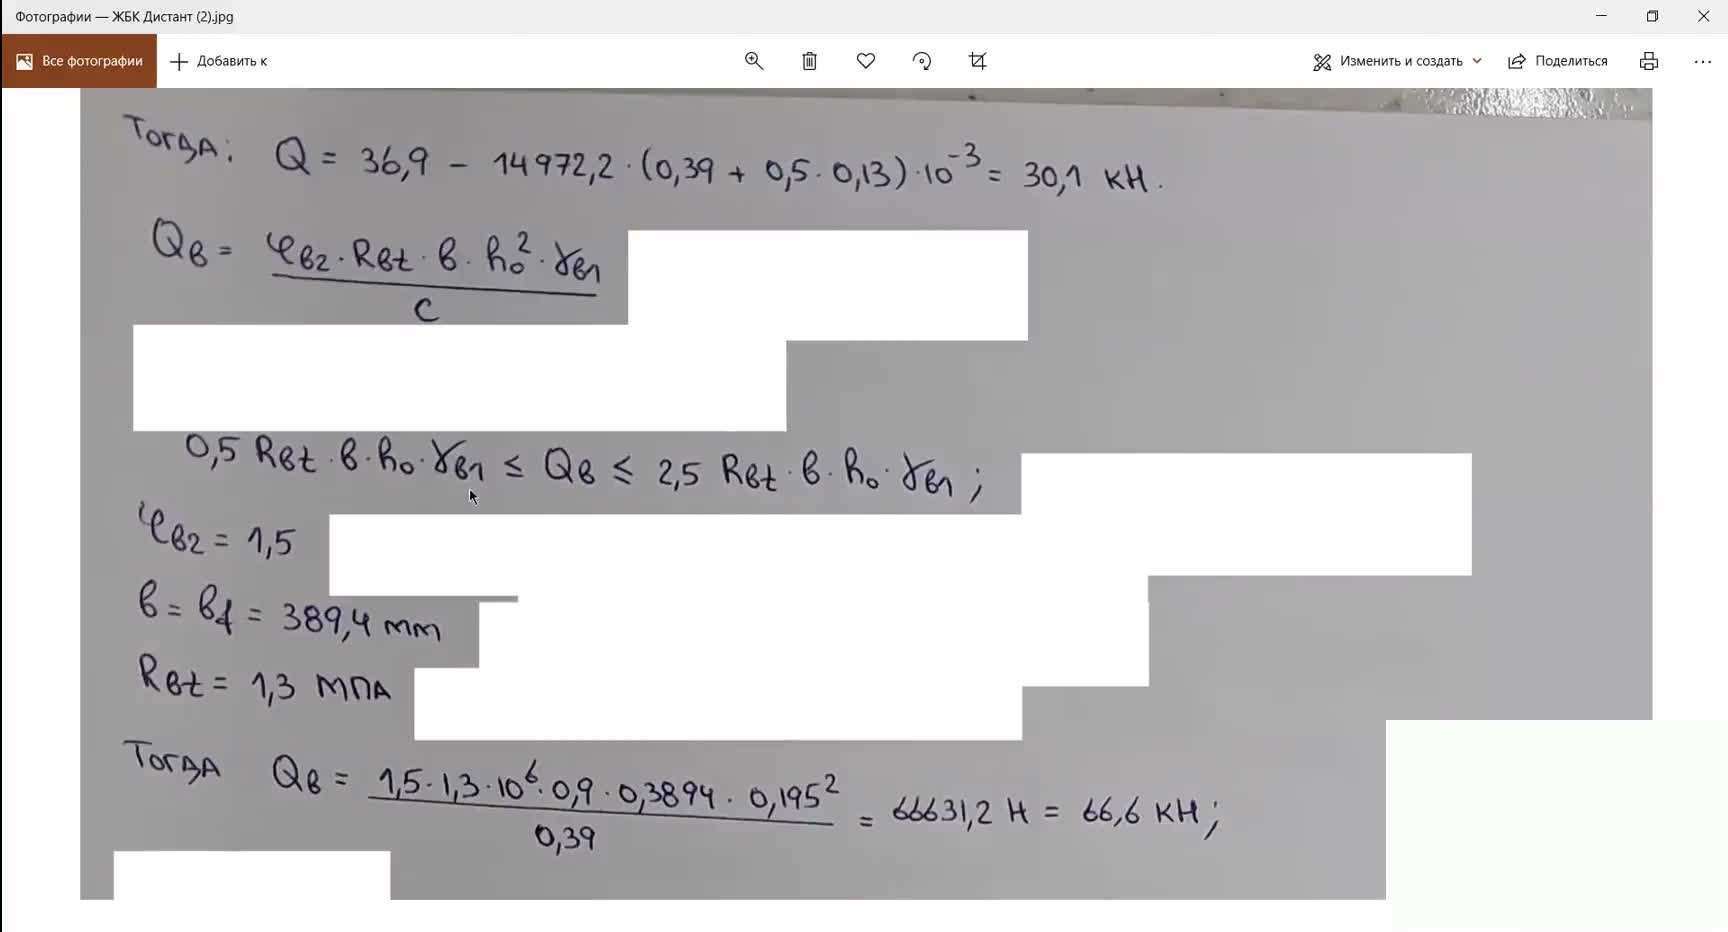 Фотографии — ЖБК Дистант (2).jpg
Все фотографии
Добавить к
Изменить и создать
Поделиться
Тогда: Q = 36,9 - 14972,2 · (0,39 + 0,5 · 0,13) · 10⁻³ = 30,1 кН.
Qв = φв2 · Rвt · в · h₀² · γв1
с
0,5 Rвt · в · h₀ · γв1 ≤ Qв ≤ 2,5 Rвt · в · h₀ · γв1 ;
φв2 = 1,5
в = вf = 389,4 мм
Rвt = 1,3 МПА
Тогда Qв = 1,5 · 1,3 · 10⁶ · 0,9 · 0,3894 · 0,195² = 66631,2 Н = 66,6 кН ;
0,39